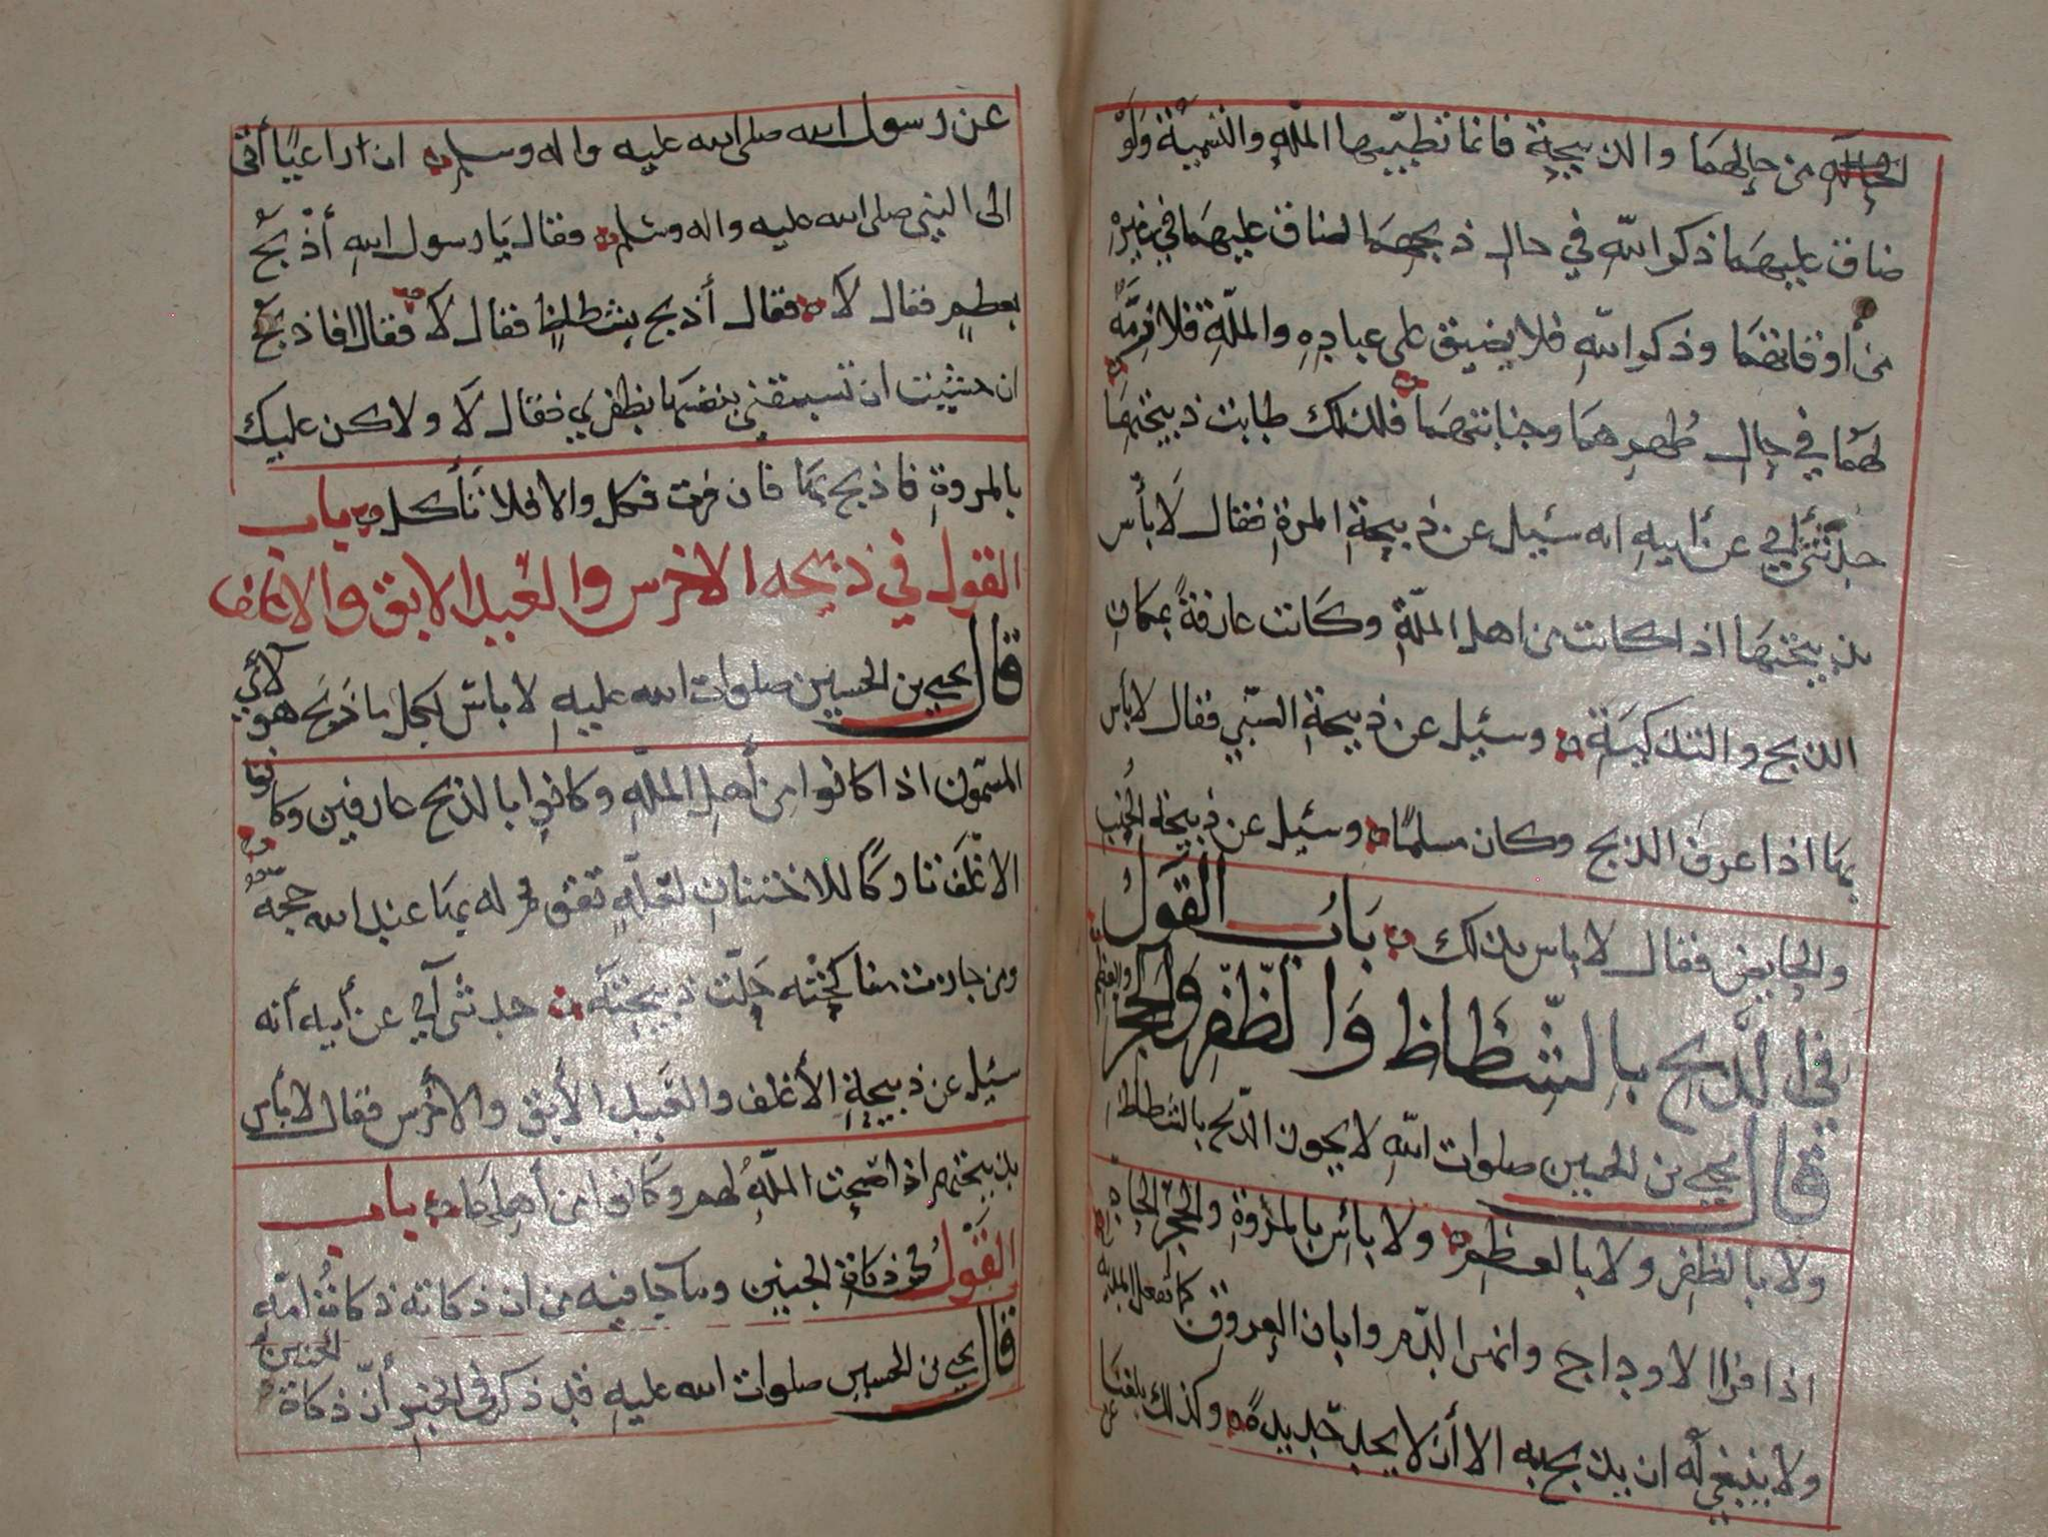 من حالهما والذبيحة فانما تطيبها الملة والتسمية ولو
ضاق عليهما ذكر الله في حال ذبحهما لضاق عليهما في غيره
من أوقاتهما وذكر الله فلا يضيق على عباده والملة فلازمة
لهما في حال طهرهما وجنابتهما فلذلك طابت ذبيحتهما
حدثني أبي عن أبيه انه سئيل عن ذبيحة المرة فقال لا بأس
بذبيحتها اذا كانت من اهل الملة وكانت عارفة بمكان
الذبح والتذكية وسئيل عن ذبيحة الصبي فقال لا بأس
بها اذا عرف الذبح وكان مسلما وسئيل عن ذبيحة الجنب
والحايض فقال لا باس بذلك باب القول
في الذبح بالشظاظ والظفر والحجر والعظم
قال يحيى بن الحسين صلوات الله لا يجوز الذبح بالشظاظ
ولا بالظفر ولا بالعظم ولا بأس بالمروة والحجر الحاد
اذا فرا الاوداج وانهر الدم وابان العروق كما تفعل المدية
ولا ينبغي له ان يذبح به الا أن لا يجد حديدة وكذلك بلغنا عن
عن رسول الله صلى الله عليه واله وسلم ان راعيا أتى
الى النبي صلى الله عليه واله وسلم فقال يا رسول الله أذبح
بعظم فقال لا فقال أذبح بشظاظ فقال لا فقال افاذبح
ان خشيت ان تسبقني بنفسها بظفري فقال لا ولاكن عليك
بالمروة فاذبح بها فان فرت فكل والا فلا تأكل باب
القول في ذبيحه الاخرس والعبد الابق والاغلف
قال يحيى بن الحسين صلوات الله عليه لا باس بكل ما ذبح هولآي
المسمون اذا كانوا من أهل الملة وكانوا بالذبح عارفين وكانوا
الاغلف تاركا للاختتان لعلة تقوم له بها عند الله حجة
ومن جازت مناكحته حلت ذبيحته حدثني أبي عن أبيه أنه
سئيل عن ذبيحة الأغلف والعبد الأبق والأخرس فقال لا بأس
بذبيحتهم اذا صحت الملة لهم وكانوا من أهلها باب
القول في ذكاة الجنين وما جا فيه من ان ذكاته ذكاة امه
قال يحيى بن الحسين صلوات الله عليه قد ذكر في الخبر أن ذكاة الجنين